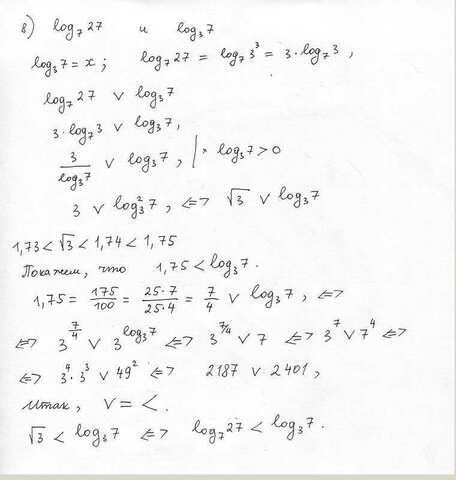 8) log₇27 и log₃7
log₃7 = x; log₇27 = log₇3³ = 3·log₇3,
log₇27 ∨ log₃7
3·log₇3 ∨ log₃7,
3/log₃7 ∨ log₃7, |· log₃7 > 0
3 ∨ log₃²7, <=> √3 ∨ log₃7
1,73 < √3 < 1,74 < 1,75
Покажем, что 1,75 < log₃7.
1,75 = 175/100 = 25·7/25·4 = 7/4 ∨ log₃7, <=>
<=> 3^(7/4) ∨ 3^(log₃7) <=> 3^(7/4) ∨ 7 <=> 3⁷ ∨ 7⁴ <=>
<=> 3⁴·3³ ∨ 49² <=> 2187 ∨ 2401,
Итак, ∨ = <.
√3 < log₃7 <=> log₇27 < log₃7.